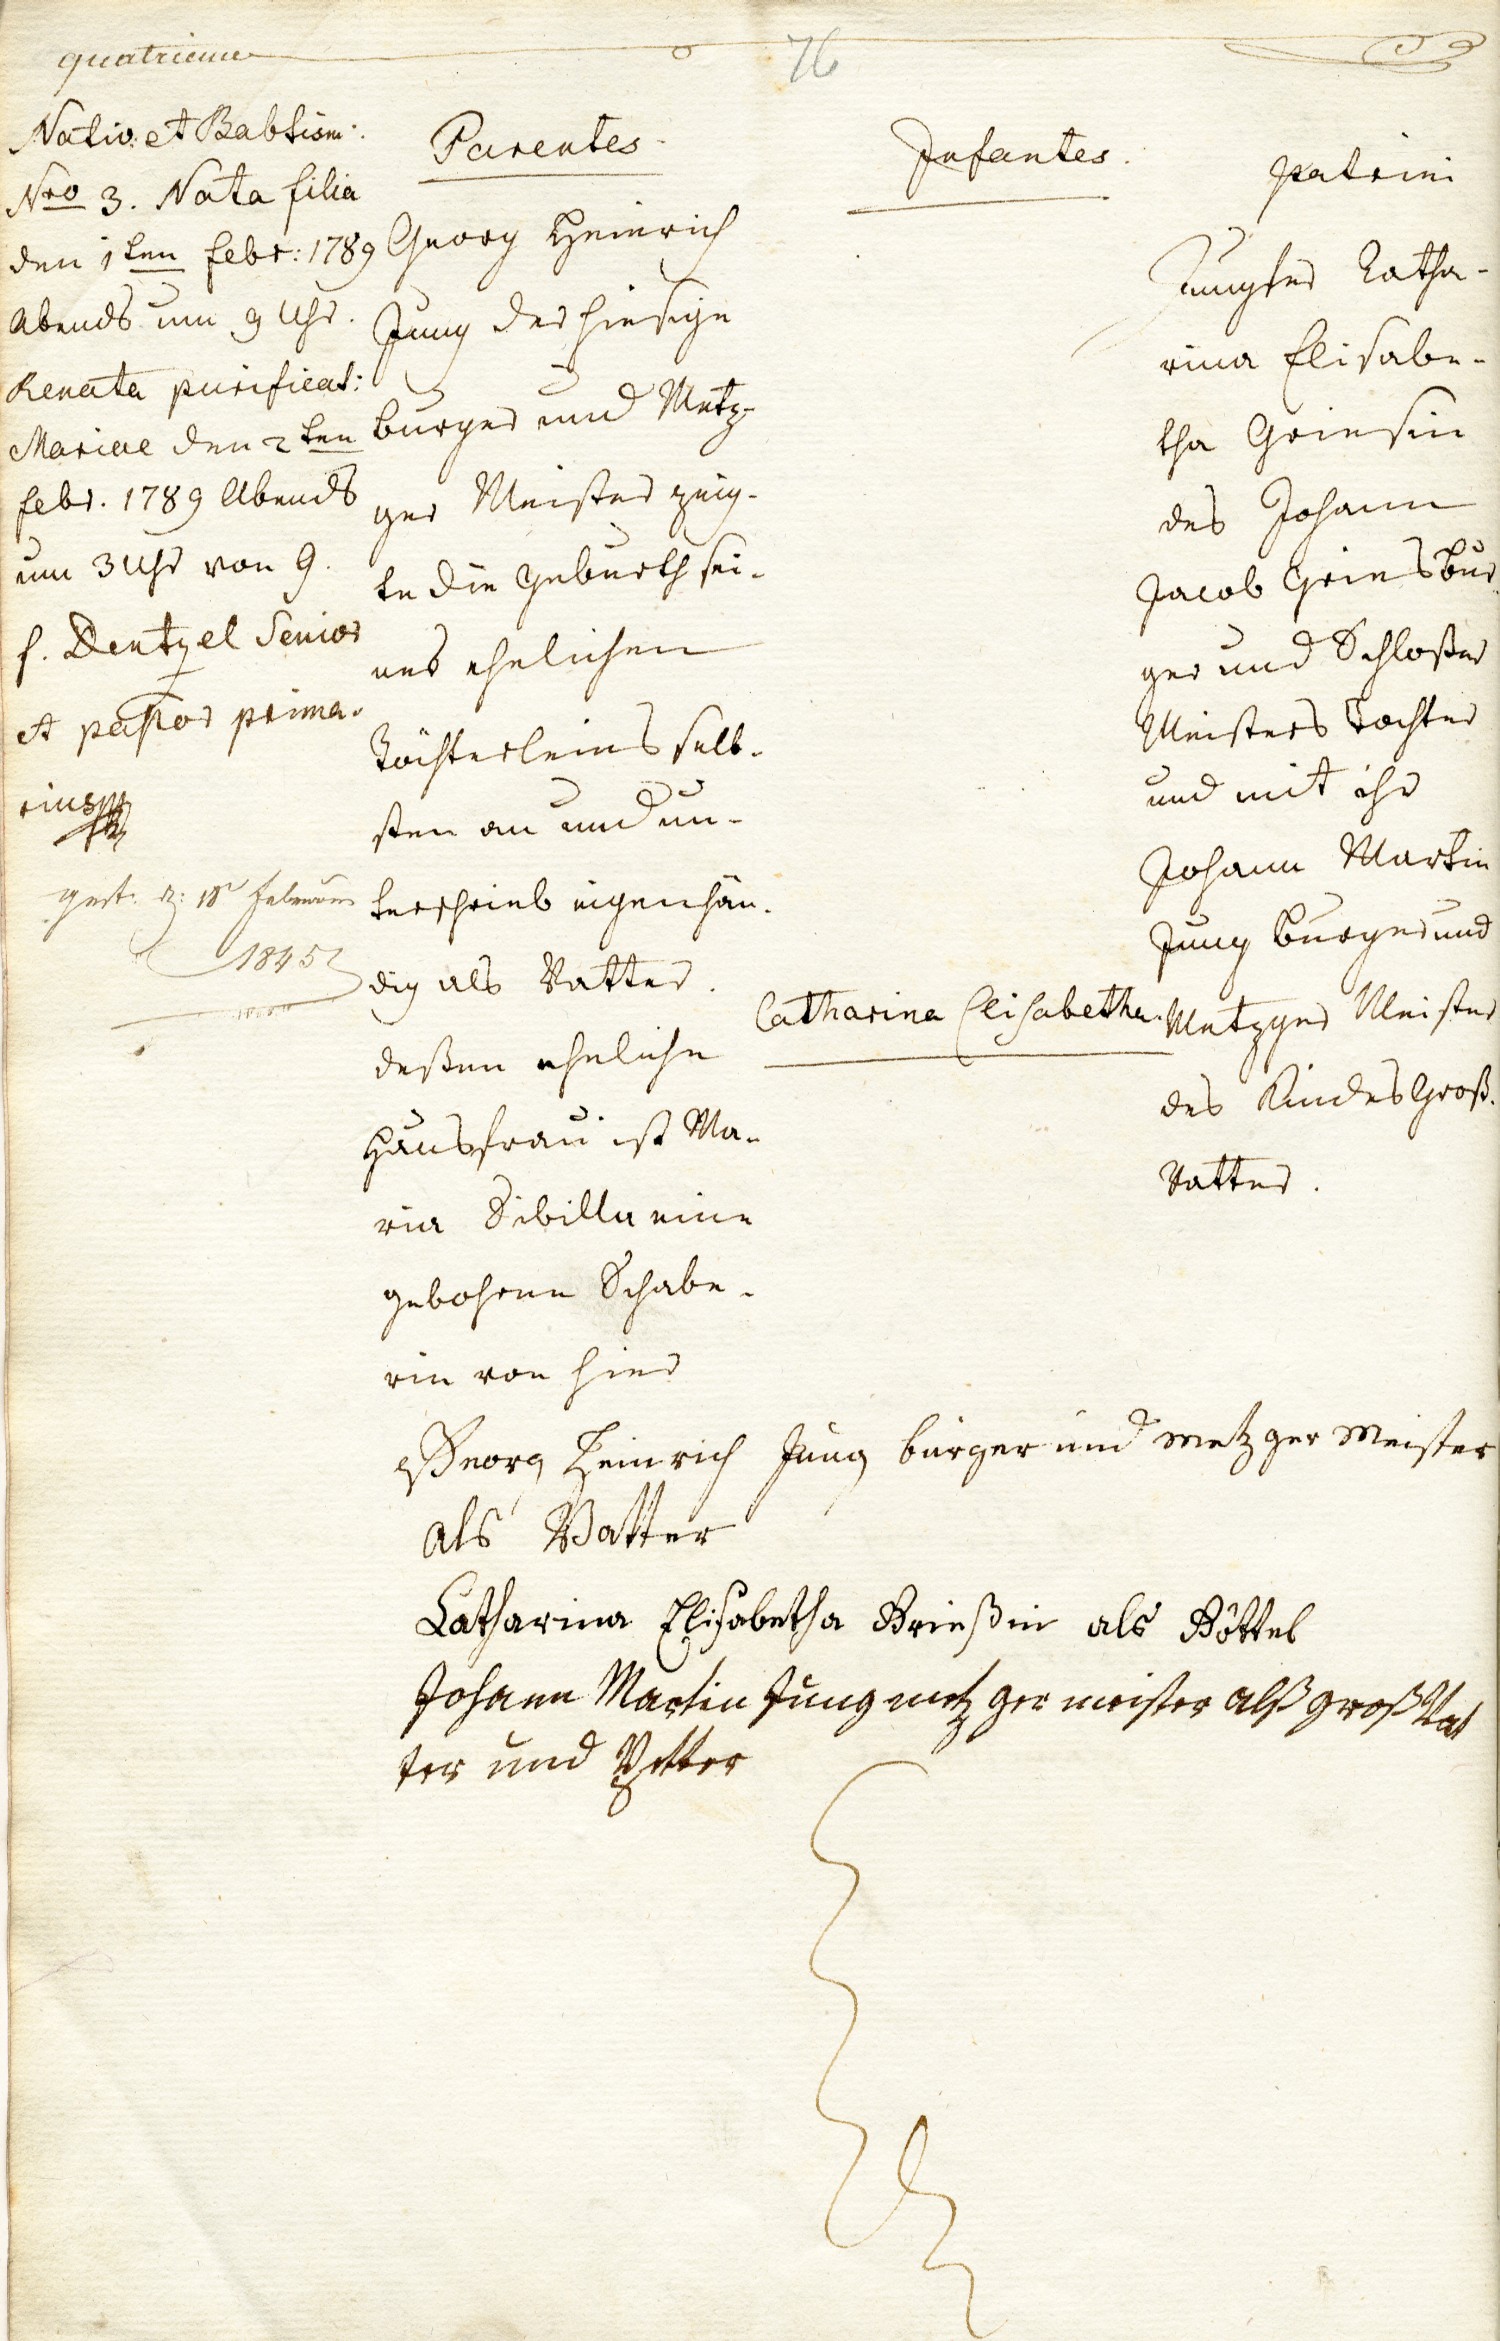 quatrieme
76
Nativ: et Babtism:
Nro 3. Nata filia
den 1ten Febr: 1789
Abends um 9 Uhr.
Renata purificat:
Mariae den 2ten
Febr. 1789 Abends
um 3 Uhr von G.
F. Dentzel Senior
et pastor prima-
rius
gest. d: 18 Februar
1845
Parentes
Georg Heinrich
Jung der hiesige
burger und Metz-
ger Meister zeig-
te die Geburth sei-
nes ehelichen
Töchterleins selb-
sten an und un-
terschrieb eigenhän-
dig als Vatter.
deßen eheliche
Hausfrau ist Ma-
ria Sibilla eine
gebohrne Schabe-
rin von hier
Infantes.
Catharina Elisabetha.
patrini
Jungfer Catha-
rina Elisabe-
tha Griesin
des Johann
Jacob Gries Bur
ger und Schloßer
Meisters Tochter
und mit ihr
Johann Martin
Jung Burger und
Metzger Meister
des Kindes Groß-
Vatter.
Georg Heinrich Jung bürger und metzger Meister
als Vatter
Catharina Elisabetha Grießin als Göttel
Johann Martin Jung metzger meister alß groß Vat
ter und Petter